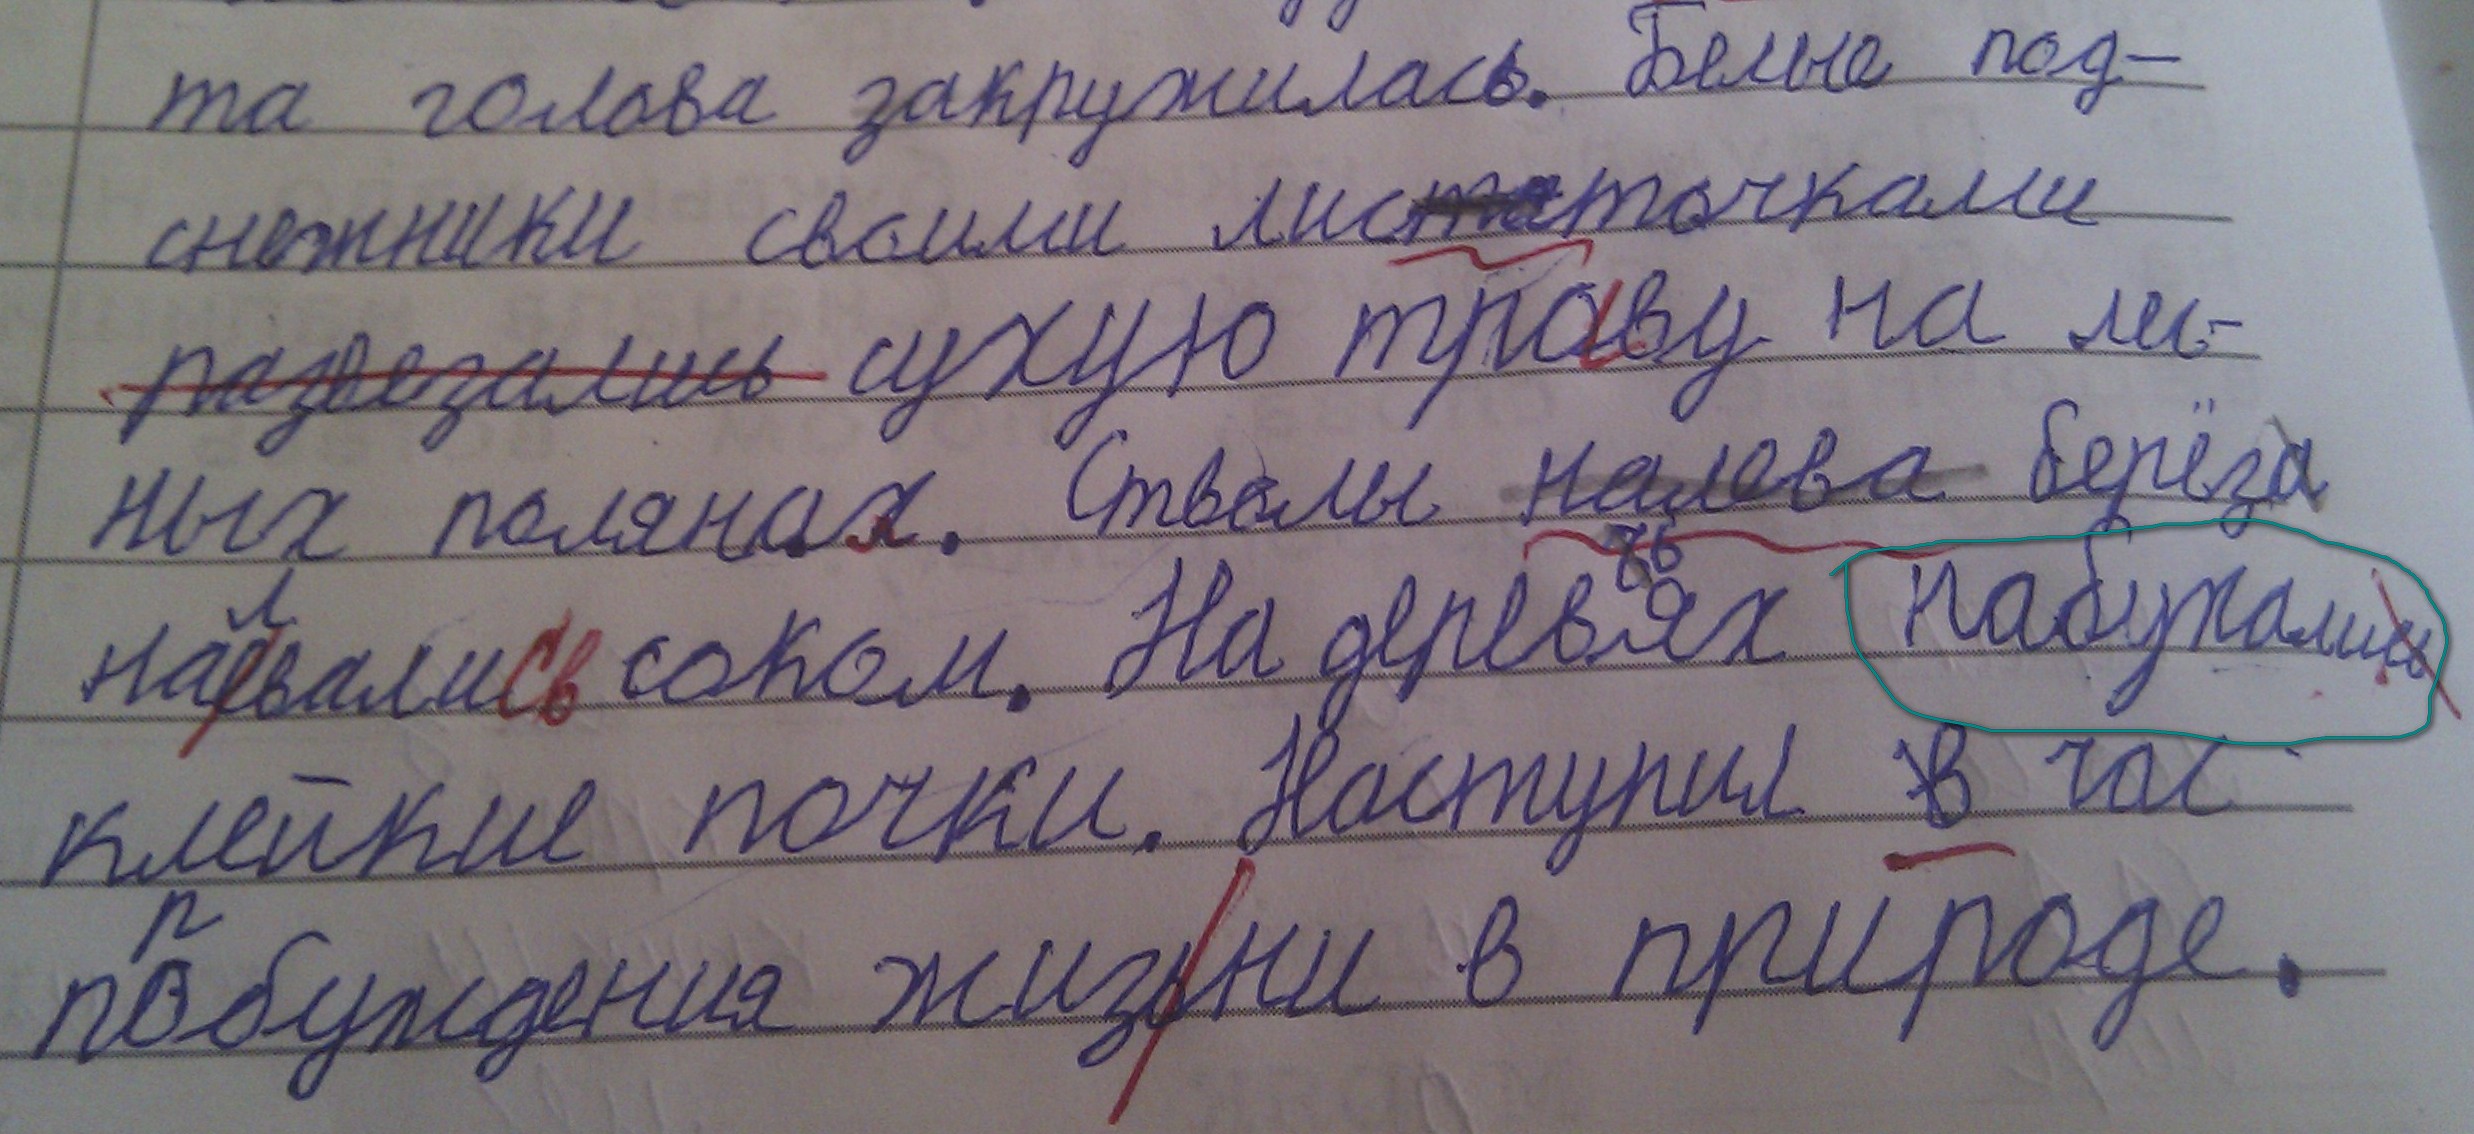 та голова закружилась. Белые под-
снежники своими листочками
разрезались сухую траву на лес-
ных полянах. Стволы налева берёза
налвались соком. На деревьях набухались
клейкие почки. Наступил в час
пробуждения жизьни в природе.